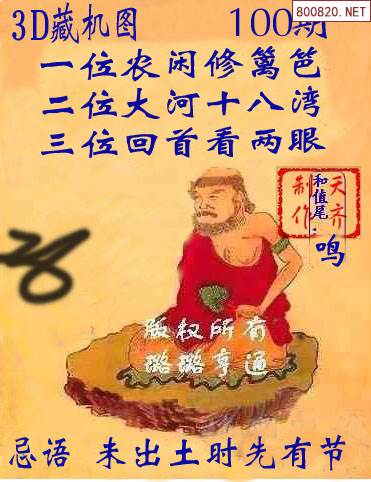 800820.NET
3D藏机图 100期
一位农闲修篱笆
二位大河十八湾
三位回首看两眼
天齐
制作
和值尾:鸣
版权所有
璐璐亨通
忌语 未出土时先有节